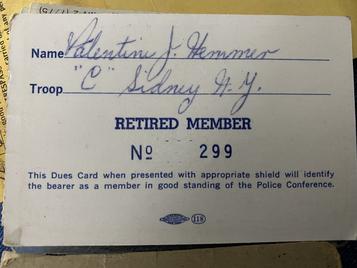 Name Valentine J. Hemmer
Troop "C" Sidney N.Y.
RETIRED MEMBER
No 299
This Dues Card when presented with appropriate shield will identify
the bearer as a member in good standing of the Police Conference.
118